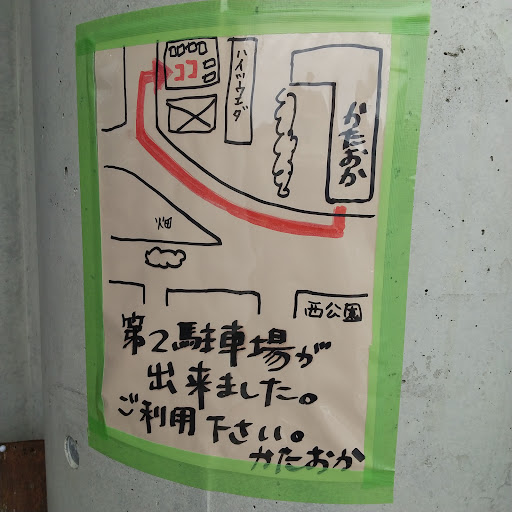 ココ
ハイツウエダ
かたおか
畑
西公園
第2駐車場が
出来ました。
ご利用下さい。
かたおか